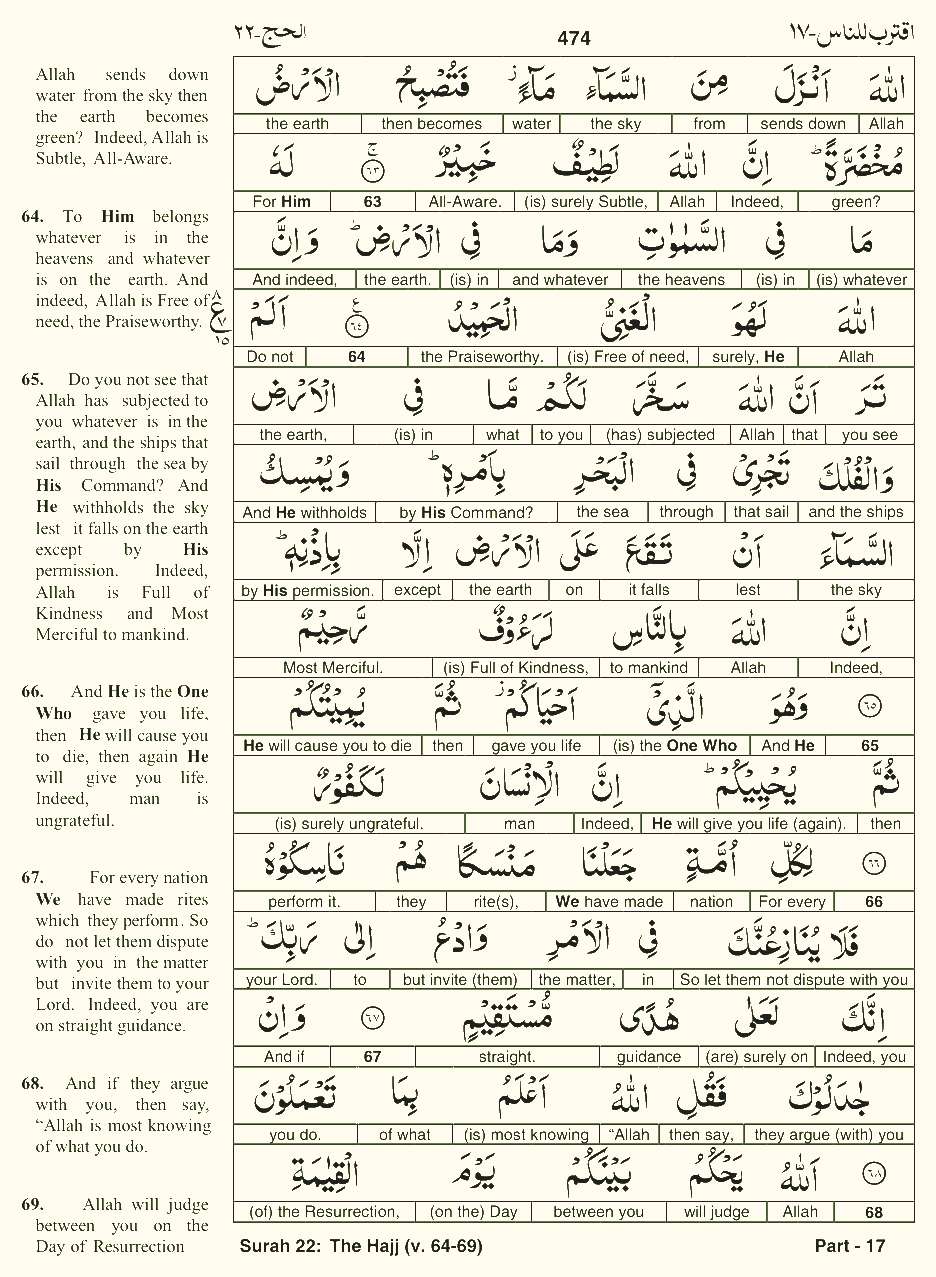 اقترب للناس-١٧
474
الحج-٢٢
Allah sends down
water from the sky then
the earth becomes
green? Indeed, Allah is
Subtle, All-Aware.
64. To Him belongs
whatever is in the
heavens and whatever
is on the earth. And
indeed, Allah is Free of
need, the Praiseworthy.
65. Do you not see that
Allah has subjected to
you whatever is in the
earth, and the ships that
sail through the sea by
His Command? And
He withholds the sky
lest it falls on the earth
except by His
permission. Indeed,
Allah is Full of
Kindness and Most
Merciful to mankind.
66. And He is the One
Who gave you life,
then He will cause you
to die, then again He
will give you life.
Indeed, man is
ungrateful.
67. For every nation
We have made rites
which they perform. So
do not let them dispute
with you in the matter
but invite them to your
Lord. Indeed, you are
on straight guidance.
68. And if they argue
with you, then say,
“Allah is most knowing
of what you do.
69. Allah will judge
between you on the
Day of Resurrection
اللّٰهَ اَنْزَلَ مِنَ السَّمَآءِ مَآءًؗ فَتُصْبِحُ الْاَرْضُ
the earth then becomes water the sky from sends down Allah
مُخْضَرَّةًؕ اِنَّ اللّٰهَ لَطِيْفٌ خَبِيْرٌ ۚ﴿٦٣﴾ لَهٗ
For Him 63 All-Aware. (is) surely Subtle, Allah Indeed, green?
مَا فِي السَّمٰوٰتِ وَمَا فِي الْاَرْضِؕ وَاِنَّ
And indeed, the earth. (is) in and whatever the heavens (is) in (is) whatever
اللّٰهَ لَهُوَ الْغَنِيُّ الْحَمِيْدُ ﴿٦٤﴾ع اَلَمْ
ع ٨ ٧ ١٥
Do not 64 the Praiseworthy. (is) Free of need, surely, He Allah
تَرَ اَنَّ اللّٰهَ سَخَّرَ لَكُمْ مَّا فِي الْاَرْضِ
the earth, (is) in what to you (has) subjected Allah that you see
وَالْفُلْكَ تَجْرِيْ فِي الْبَحْرِ بِاَمْرِهٖؕ وَيُمْسِكُ
And He withholds by His Command? the sea through that sail and the ships
السَّمَآءَ اَنْ تَقَعَ عَلَى الْاَرْضِ اِلَّا بِاِذْنِهٖؕ
by His permission. except the earth on it falls lest the sky
اِنَّ اللّٰهَ بِالنَّاسِ لَرَءُوْفٌ رَّحِيْمٌ
Most Merciful. (is) Full of Kindness, to mankind Allah Indeed,
﴿٦٥﴾ وَهُوَ الَّذِيْٓ اَحْيَاكُمْؗ ثُمَّ يُمِيْتُكُمْ
He will cause you to die then gave you life (is) the One Who And He 65
ثُمَّ يُحْيِيْكُمْؕ اِنَّ الْاِنْسَانَ لَكَفُوْرٌ
(is) surely ungrateful. man Indeed, He will give you life (again). then
﴿٦٦﴾ لِكُلِّ اُمَّةٍ جَعَلْنَا مَنْسَكًا هُمْ نَاسِكُوْهُ
perform it. they rite(s), We have made nation For every 66
فَلَا يُنَازِعُنَّكَ فِي الْاَمْرِ وَادْعُ اِلٰى رَبِّكَؕ
your Lord. to but invite (them) the matter, in So let them not dispute with you
اِنَّكَ لَعَلٰى هُدًى مُّسْتَقِيْمٍ ﴿٦٧﴾ وَاِنْ
And if 67 straight. guidance (are) surely on Indeed, you
جٰدَلُوْكَ فَقُلِ اللّٰهُ اَعْلَمُ بِمَا تَعْمَلُوْنَ
you do. of what (is) most knowing “Allah then say, they argue (with) you
﴿٦٨﴾ اَللّٰهُ يَحْكُمُ بَيْنَكُمْ يَوْمَ الْقِيٰمَةِ
(of) the Resurrection, (on the) Day between you will judge Allah 68
Surah 22: The Hajj (v. 64-69)
Part - 17